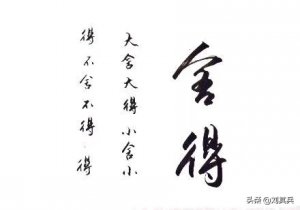 舍得
大舍大得小舍小
得不舍不得·得
头条@刘真兵